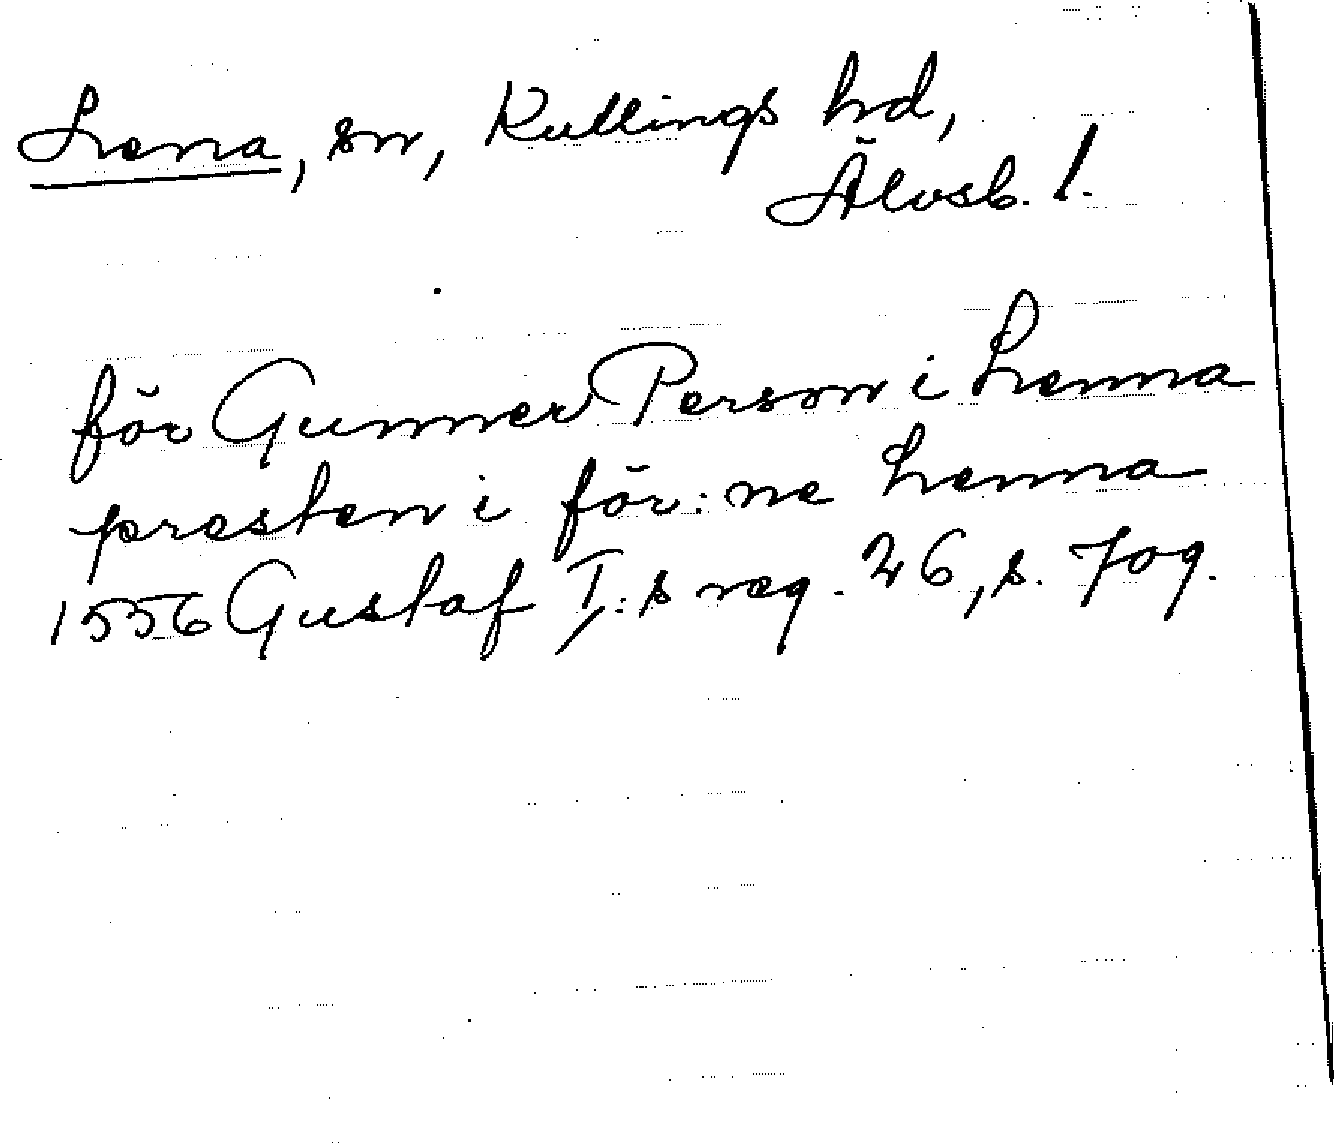 Lena, sn, Kullings hd,
Älvsb. l.
för Gunner Person i Lenna
presten i för:ne Lenna
1556 Gustaf I:s reg. 26, s. 709.